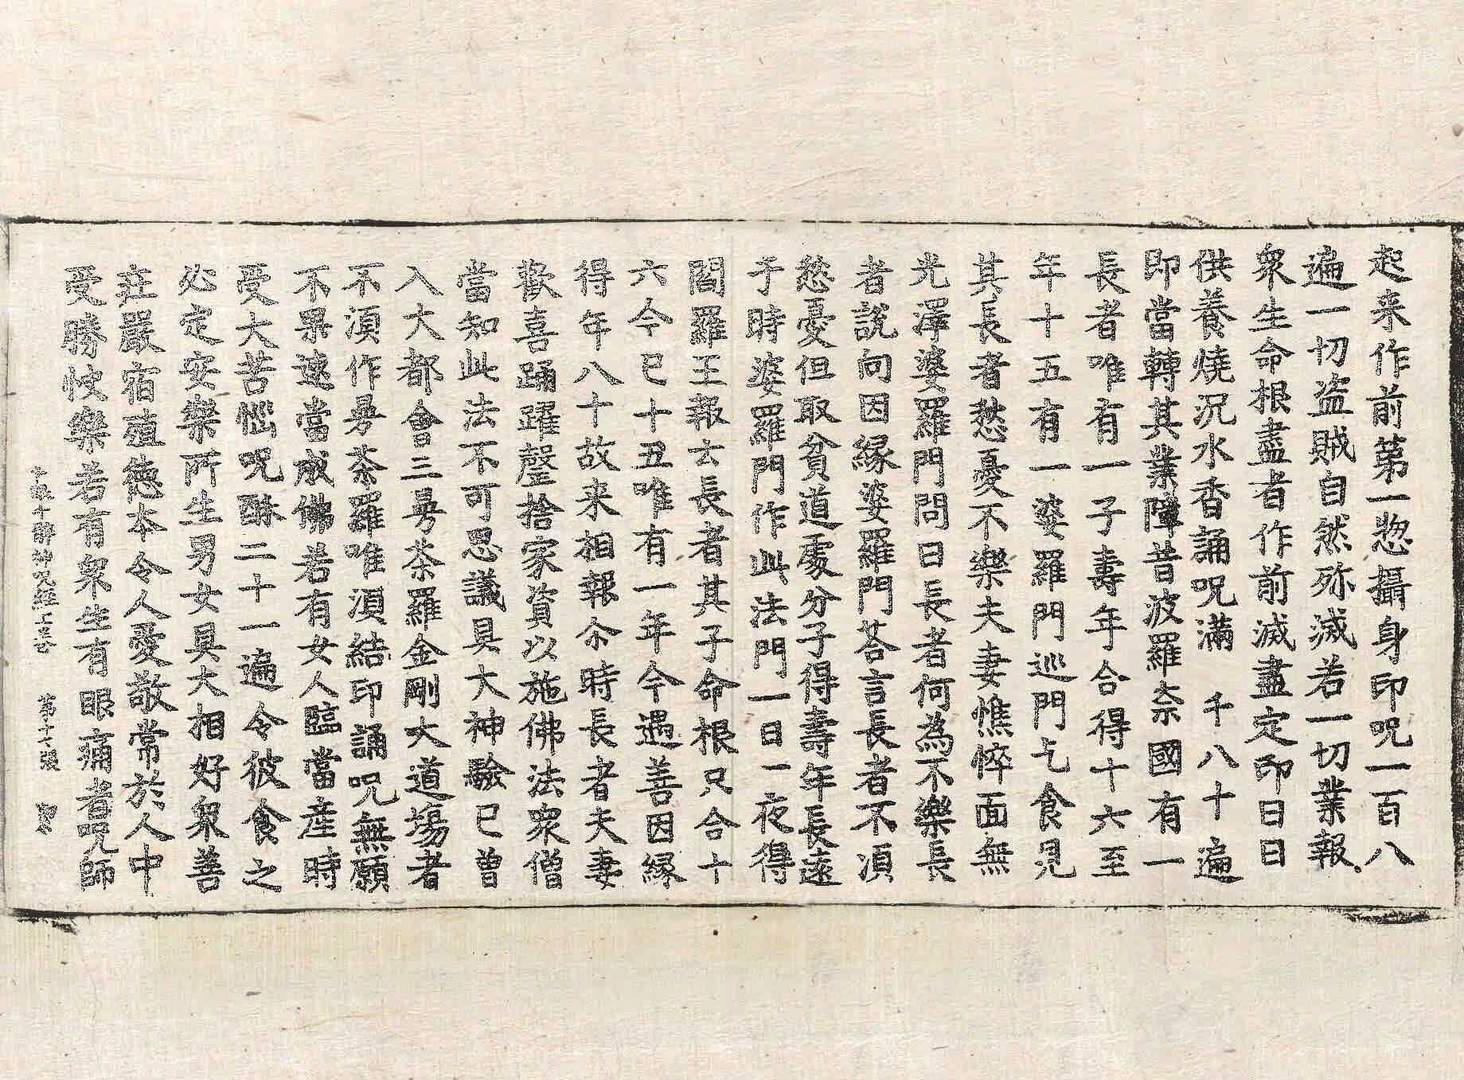 起来作前第一惣攝身印呪一百八
遍一切盗賊自然殄滅若一切業報
衆生命根盡者作前滅盡定印日日
供養燒沉水香誦呪滿一千八十遍
即當轉其業障昔波羅奈國有一
長者唯有一子壽年合得十六至
年十五有一婆羅門巡門乞食見
其長者愁憂不樂夫妻憔悴面無
光澤婆羅門問曰長者何為不樂長
者說向因緣婆羅門荅言長者不湏
愁憂但取貧道處分子得壽年長遠
于時婆羅門作此法門一日一夜得
閻羅王報云長者其子命根只合十
六今已十五唯有一年今遇善因緣
得年八十故来相報尒時長者夫妻
歡喜踊躍罄捨家資以施佛法衆僧
當知此法不可思議具大神驗已曾
入大都會三曼荼羅金剛大道場者
不湏作曼荼羅唯湏結印誦呪無願
不果速當成佛若有女人臨當産時
受大苦惱呪酥二十一遍令彼食之
必定安樂所生男女具大相好衆善
莊嚴宿殖德本令人愛敬常於人中
受勝快樂若有衆生有眼痛者呪師
千眼千臂神呪經上卷 第十七張